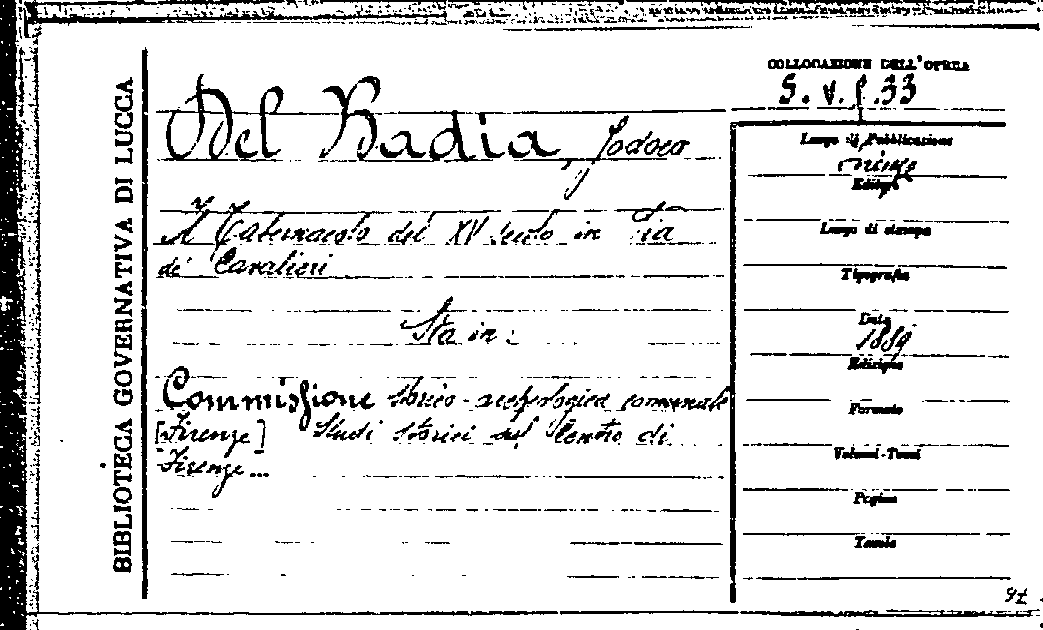 BIBLIOTECA GOVERNATIVA DI LUCCA
COLLOCAZIONE DELL'OPERA
S. V. f. 33
Del Badia, Jodoco
Il Tabernacolo del XV secolo in Via
de' Cavalieri
Sta in:
Commissione storico-archeologica comunale
[Firenze] Studi storici sul Centro di
Firenze...
Luogo di Pubblicazione
Editore
Luogo di stampa
Tipografia
Data
1889
Edizione
Formato
Volumi-Tomi
Pagine
Tavole